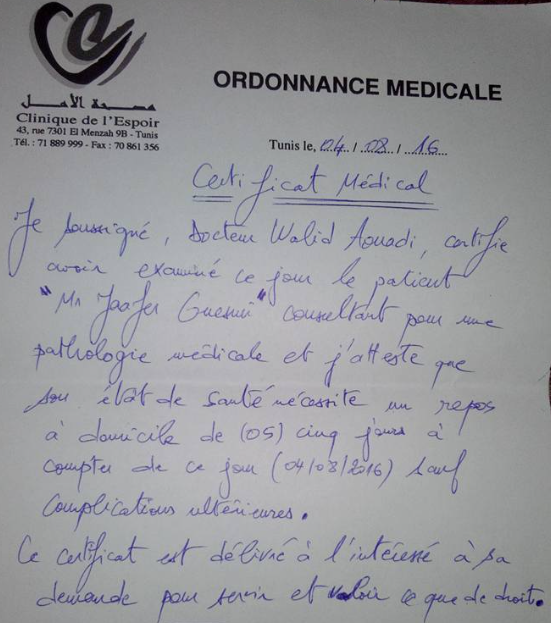 مصحة الأمل
Clinique de l'Espoir
43, rue 7301 El Menzah 9B - Tunis
Tél. : 71 889 999 - Fax : 70 861 356
ORDONNANCE MEDICALE
Tunis le, 04 / 08 / 16
Certificat Médical
Je soussigné, Docteur Walid Aouadi, certifie
avoir examiné ce jour le patient
"Mr Jaafer Guesmi" consultant pour une
pathologie médicale et j'atteste que
son état de santé nécessite un repos
à domicile de (05) cinq jours à
compter de ce jour (04/08/2016) sauf
complications ultérieures.
Ce certificat est délivré à l'intéressé à sa
demande pour servir et valoir ce que de droit.